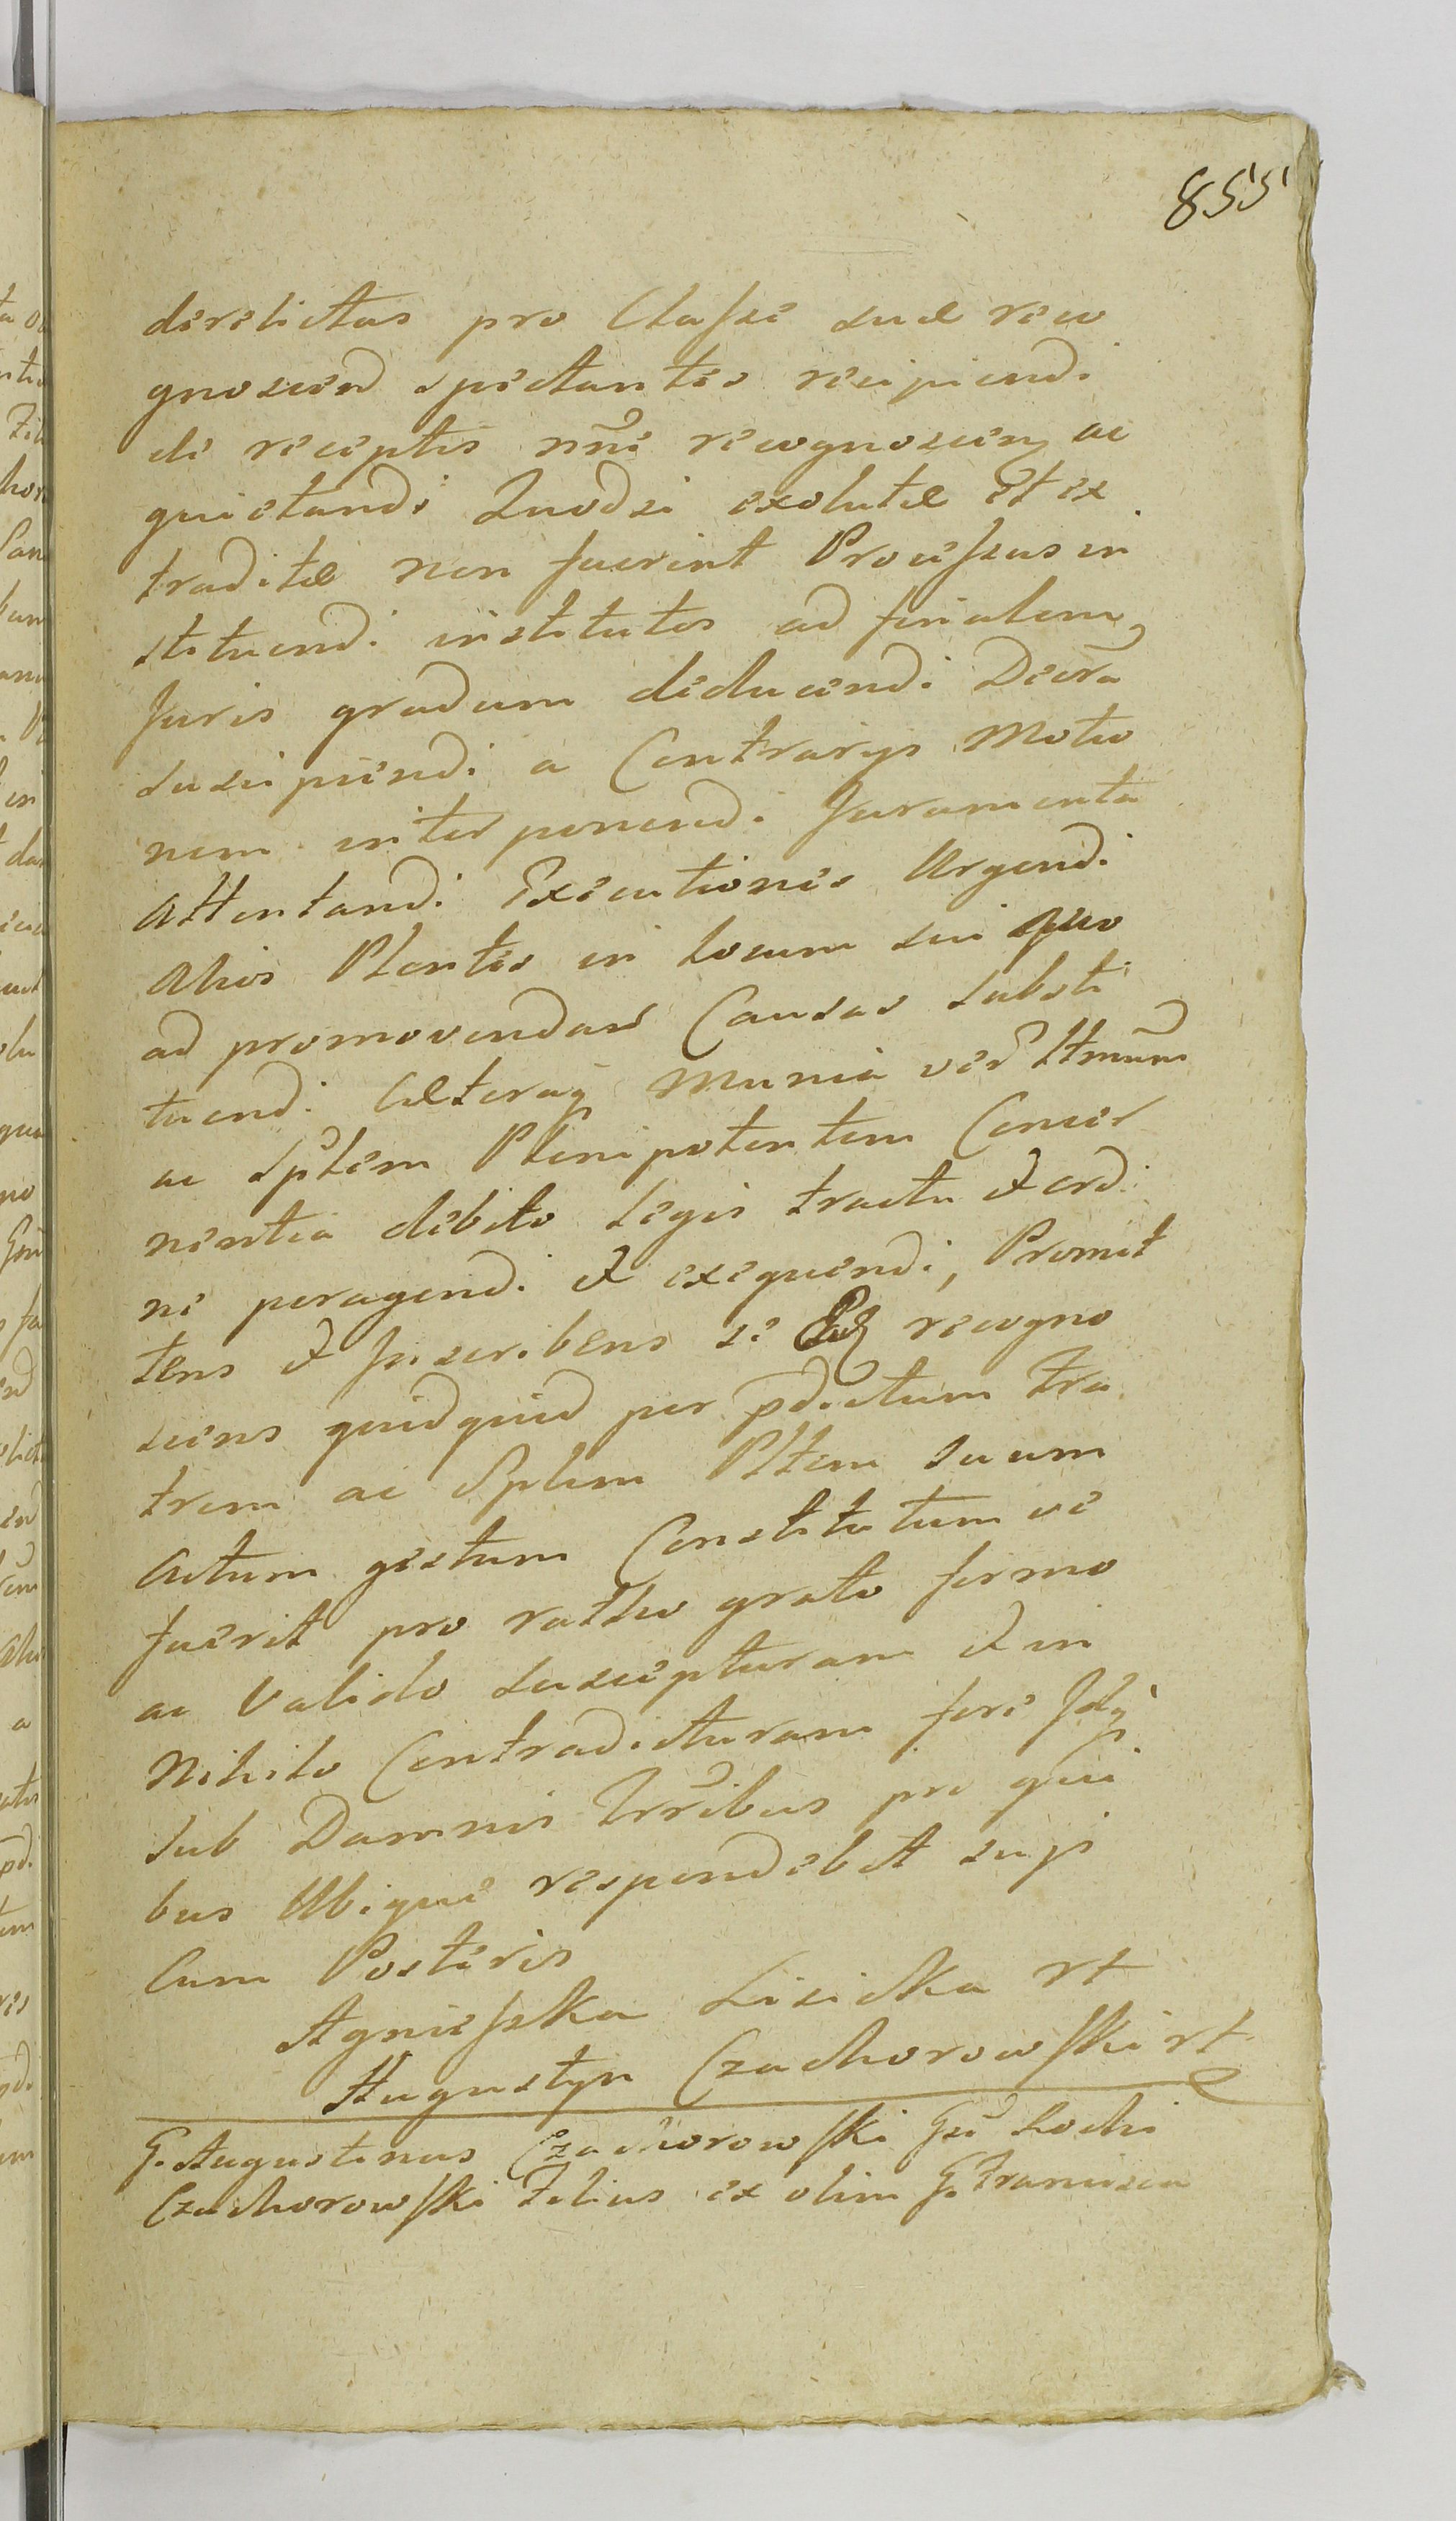 855
derelictas pro Classe suæ reco
gnoscend spectantes recipiendi
de receptis nni recognoscen ac
quietandi Quodsi exolutæ Et ex
traditæ non fuerint Processus in
stituendi institutos ad finalem
Juris gradum deducendi Decra
suscipiendi a Contrarys Motio
nem interponendi Juramenta
Attentandi Executiones Urgendi
Alios Plentes in locum sui quo
ad promovendas Causas substi
tuendi Cæteraq Munia ver Ittmum
ac Spłem Plenipotentem Concer
nentia debito Legis tractu et ordi
ne peragendi et exequendi, Promit
tens et Inscribens se recogno
scens quidquid per pdictum Fra
trem ac Splem Pltem suum
Actum gestum Constitutum ve
fuerit pro ratho grato firmo
ac Valido suscepturam et in
Nihilo Contradicturam fore Idq
sub Damnis Trribus pro qui
bus Ubique respondebit su ps
Cum Posteris
Agnieszka Lisicka rt
Augustyn Czachorowski rt
G. Augustinus Czachorowski Gsi Rochi
Czachorowski Filius ex olim G. Francisca